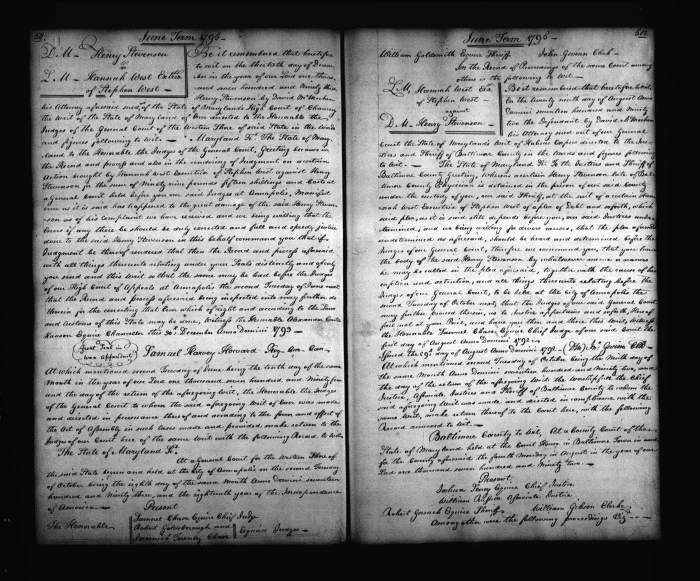 June Term 1795
D. M. Henry Stevenson
vs
L. M. Hannah West Extrix
of Stephen West
Be it remembered that heretofore
to wit on the thirtieth day of Decem-
ber in the year of our Lord one thou-
sand seven hundred and Ninety three
Henry Stevenson by David McMechen
his Attorney aforesaid and of the State of Maryland's High Court of Chancery
the writ of the State of Maryland of Error directed to the Honorable the
Judges of the General Court of the Western Shore of said State in the words
and figures following to wit. Maryland Sc. The State of Mary-
land to the Honorable the Judges of the General Court, Greeting because in
the Record and process and also in the rendering of Judgment on a certain
Action brought by Hannah West Executrix of Stephen West against Henry
Stevenson for the sum of Ninety nine pounds fifteen shillings and Costs at
a General Court held before you our said Judges at Annapolis, Manifest
error as it is said has happened to the great damage of the said Henry Steven-
son as of his Complaint we have received and we being willing that the
Error if any there be should be duly corrected and full and speedy justice
done to the said Henry Stevenson in this behalf command you that if
Judgment be thereof rendered that then the Record and process aforesaid
with all things thereunto relating under your Seals distinctly and openly
you send and this writ so that the same may be had before the Judges
of our High Court of Appeals at Annapolis the second Tuesday of June next
that the Record and process aforesaid being inspected we may further do
therein for the correcting that Error which of right and according to the Laws
and customs of this State may be done, Witness the Honorable Alexander Contee
Hanson Esquire Chancellor this 30th December Anno Domini 1793
Samuel Harvey Howard Reg. Cur. Can.
At which mentioned second Tuesday of June being the tenth day of the same
Month in the year of our Lord one thousand seven hundred and Ninety four
and the day of the return of the aforegoing writ, the Honorable the Judges
of the General Court to whom the said aforegoing Writ of Error was made
and directed in pursuance thereof and according to the form and effect of
the Act of Assembly in such Cases made and provided make return to the
Judges of our Court here of the same writ with the following Record to wit,
The State of Maryland Sc.
At a General Court for the Western Shore of
the said State begun and held at the City of Annapolis on the second Tuesday
of October being the eighth day of the same Month Anno Domini seventeen
hundred and Ninety three, and the eighteenth year of the Independence
of America
Present
The Honorable
Samuel Chase Esquire Chief Judge
Robert Goldsborough and
Jeremiah Townley Chase
Esquires Judges
June Term 1795
William Goldsmith Esquire Sheriff John Gwinn Clerk
In the Record of Proceedings of the same Court among
others is the following to wit
L. M. Hannah West Exx
of Stephen West
against
D. M. Henry Stevenson
Be it remembered that heretofore to wit,
On the twenty ninth day of August Anno
Domini seventeen hundred and Ninety
two the Defendant by David McMechen
his Attorney sued out of our General
Court the State of Maryland's Writ of Habeas Corpus directed to the Jus-
tices and Sheriff of Baltimore County in the words and figures following
to wit. The State of Maryland Sc. To the Justices and Sheriff of
Baltimore County Greeting, Whereas a certain Henry Stevenson late of Bal-
timore County Physician is detained in the prison of our said County
under the custody of you, our said Sheriff, at the suit of a certain Han-
nah West Executrix of Stephen West of a plea of Debt and so forth, which
said plea, as it is said still depends before you, our said Justices undeter-
mined, and we being willing for divers causes, that the plea aforesaid
undetermined as aforesaid, should be heard and determined before the
Judges of our General Court, therefore we command you, that you have
the body of the said Henry Stevenson by whatsoever name or surname
he may be called in the plea aforesaid, together with the causes of his
caption and detention, and all things thereunto relating before the
Judges of our General Court, to be held at the City of Annapolis the
second Tuesday of October next, that the Judges of our said General Court
may further proceed therein, as to Justice appertains and so forth Hereof
fail not at your Peril, and have you then and there this writ, Witness
the Honorable Samuel Chase Esquire Chief Judge of our said Court the
first day of August Anno Domini 1792
Issued the 29th day of August Anno Domini 1792. Jno. Gwinn Clk
At which mentioned second Tuesday of October being the Ninth day of
the same Month Anno Domini seventeen hundred Ninety two, and
the day of the return of the aforegoing writ the worshipful the Chief
Justice, Associate Justices and Sheriff of Baltimore County to whom the
said aforegoing writ was made and directed in compliance with the
same writ, make return thereof to the Court here, with the following
Record annexed to wit.
Baltimore County to wit, At a County Court of the
State of Maryland held at the Court House in Baltimore Town in and
for the County aforesaid the fourth Monday in August in the year of our
Lord one thousand seven hundred and Ninety two
Present
Joshua Esquire Chief Justice
William Associate Justice
Robert Gorsuch Esquire Sheriff William Gibson Clerk
Among other were the following proceedings Viz